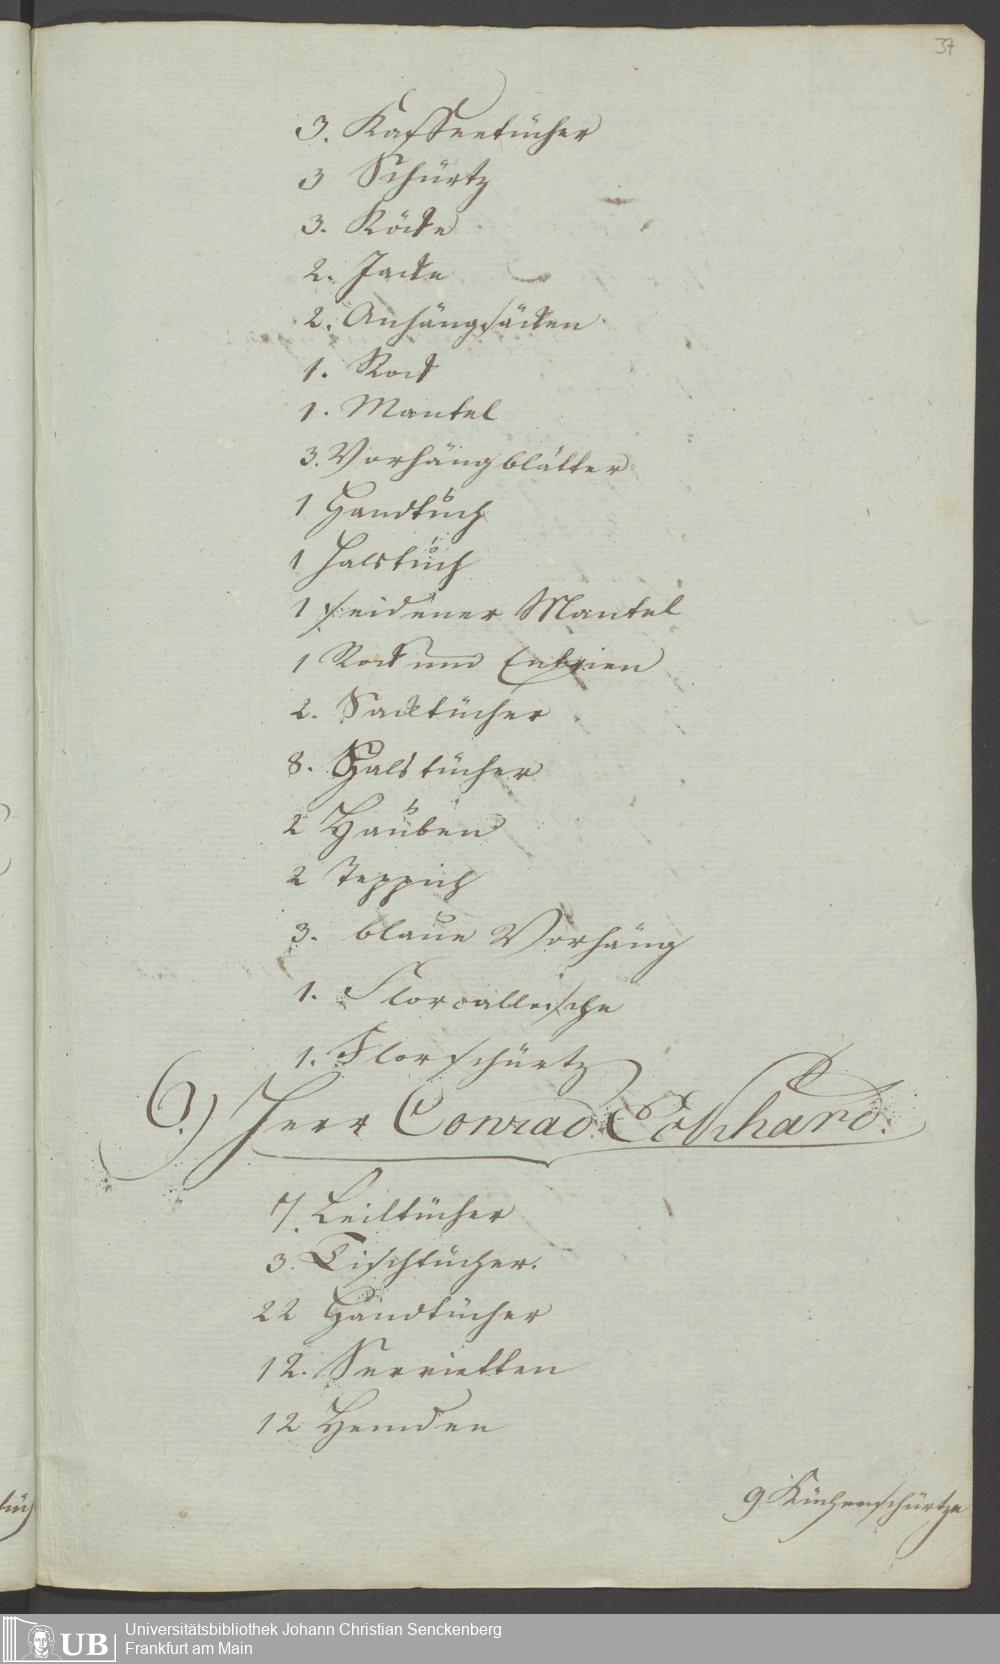 37
3. Kaffeetücher
3 Schürtz
3. Röcke
2. Jacke
2. Anhängsäcken
1. Rock
1. Mantel
3. Vorhängblätter
1 Handtuch
1 Halstuch
1 seidener Mantel
1 Rock und
2. Sacktücher
8. Halstücher
2 Hauben
2 Teppich
3. blaue Vorhäng
1.
1. Florschürtz
6.) Herr Conrad
7 Leiltücher
3. Tischtücher.
22 Handtücher
12. Servietten
12 Hemden
9 Küchenschürtze
Universitätsbibliothek Johann Christian Senckenberg
Frankfurt am Main
UB